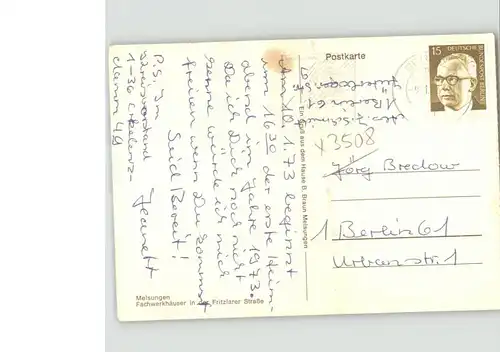 Postkarte
15
DEUTSCHE
BUNDESPOST BERLIN
Am 10.1.73 beginnt
um 16³⁰ der erste Heim-
abend im Jahre 1973.
Da ich Dich noch nicht
kenne würde ich mich
freuen wenn Du kommst
Seid Bereit!
Jeanett
P.S. Im
1-36
Ein Gruß aus dem Hause B. Braun Melsungen
1 Berlin 61
x3508
Jörg Bredow
1 Berlin 61
Urbanstr. 1
Melsungen
Fachwerkhäuser in der Fritzlarer Straße